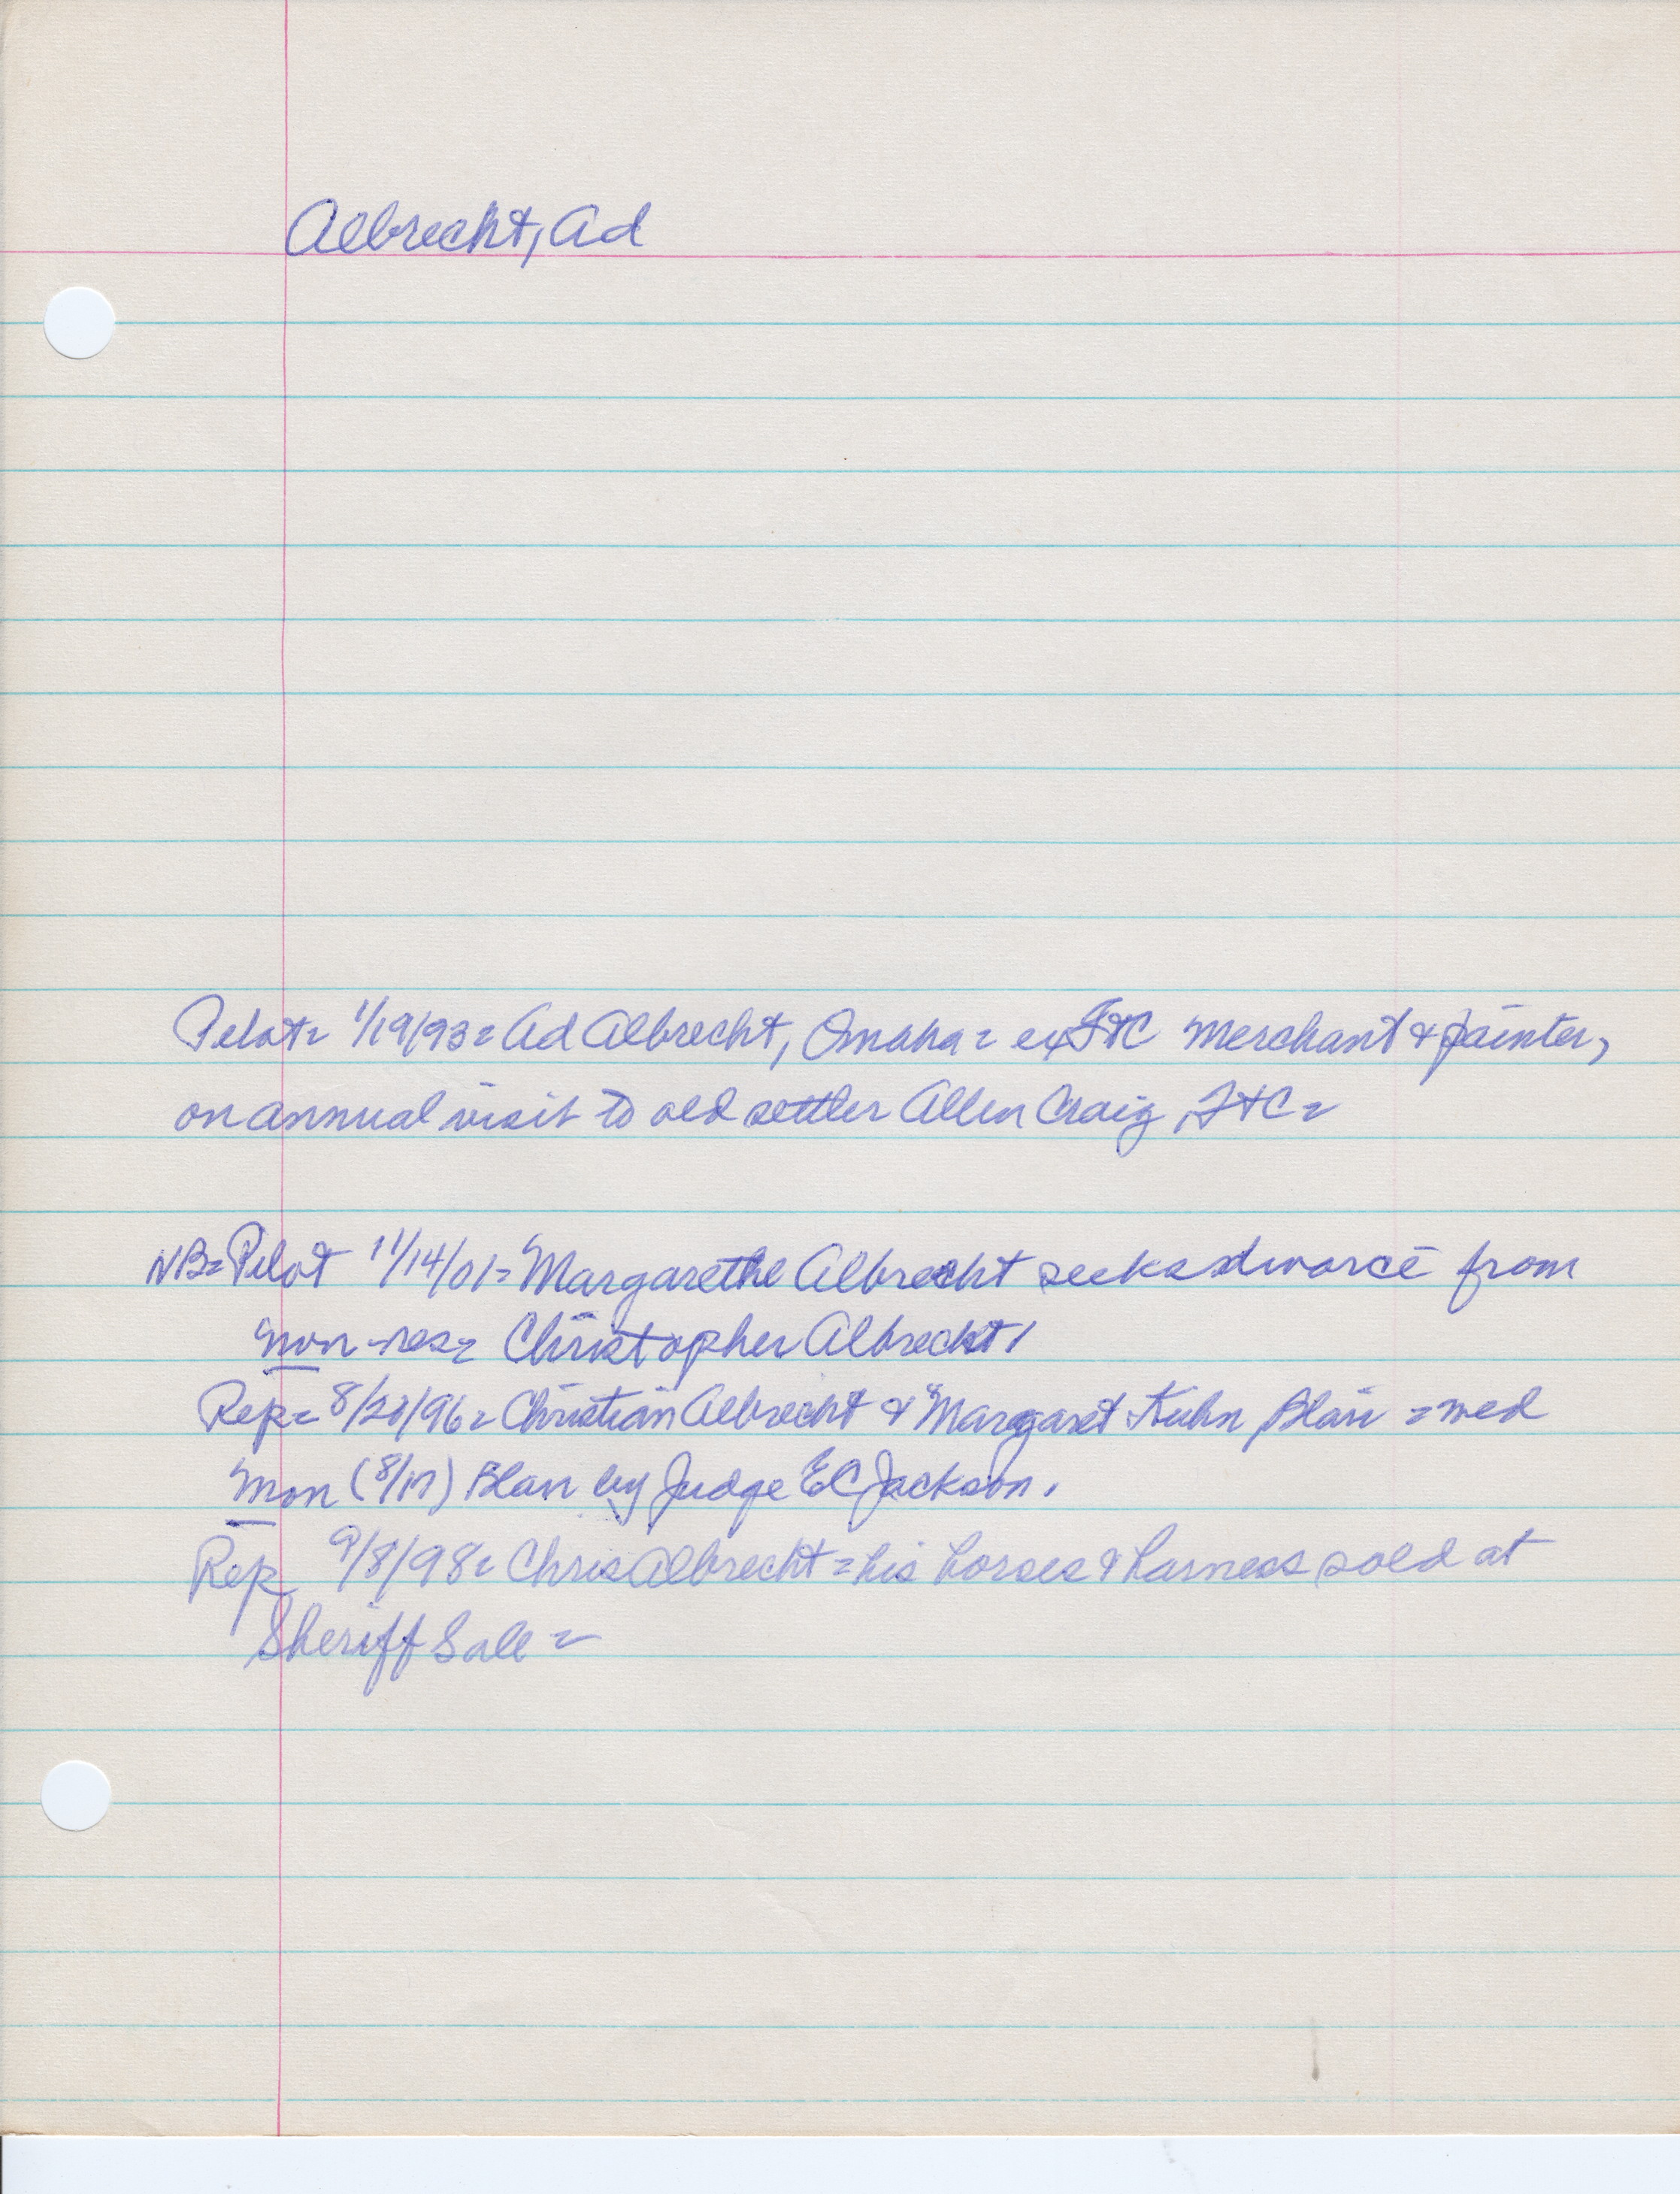 Albrecht, Ad
Pilot= 1/19/93= Ad Albrecht, Omaha= ex FtC Merchant & painter,
on annual visit to old settler Allen Craig, FtC=
NB= Pilot 11/14/01= Margarethe Albrecht seeks divorce from
non-res= Christopher Albrecht/
Rep= 8/20/96= Christian Albrecht & Margaret Kuhn Blair = wed
Mon (8/17) Blair by Judge EC Jackson.
Rep 9/8/98= Chris Albrecht = his horses & harness sold at
Sheriff Sale =